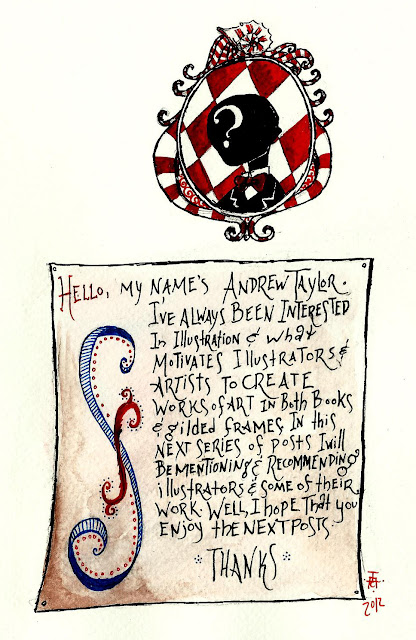 ?
HELLO, MY NAME'S ANDREW TAYLOR.
I'VE ALWAYS BEEN INTERESTED
IN ILLUSTRATION & WHAT
MOTIVATES ILLUSTRATORS &
ARTISTS TO CREATE
WORKS of ART IN BOTH BOOKS
& gilded FRAMES. IN this
NEXT SERIES of POSTS I will
BE MENTIONING & RECOMMENDING
illustrators & SOME of their
WORK. WELL, I hOPE That you
ENJOY the NEXT POSTS.
THANKS
2012